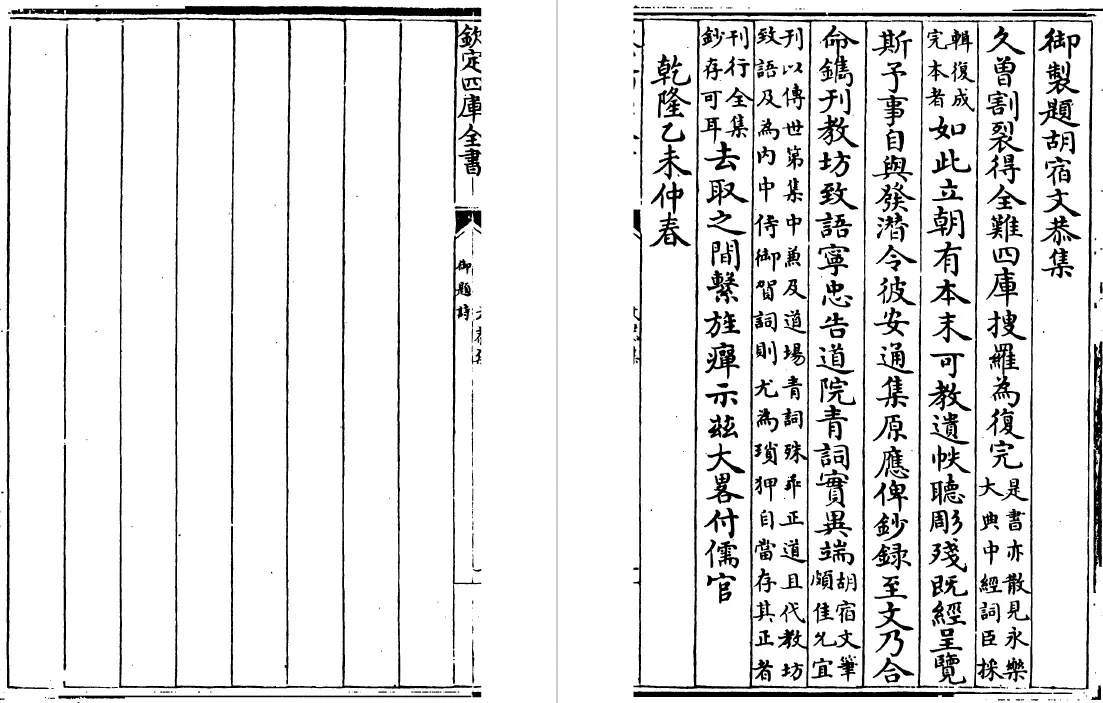 御製題胡宿文恭集
久曾割裂得全難四庫搜羅為復完
是書亦散見永樂
大典中經詞臣採
輯復成
完本者
如此立朝有本末可教遺帙聽彫殘既經呈覽
斯予事自與發潛令彼安通集原應俾鈔録至文乃合
命鐫刊教坊致語寧忠告道院青詞實異端
胡宿文筆
頗佳允宜
刊以傳世第集中兼及道場青詞殊乖正道且代教坊
致語及為内中侍御賀詞則尤為瑣狎自當存其正者
刊行全集
鈔存可耳
去取之間繫旌癉示兹大畧付儒官
乾隆乙未仲春
欽定四庫全書
御題詩